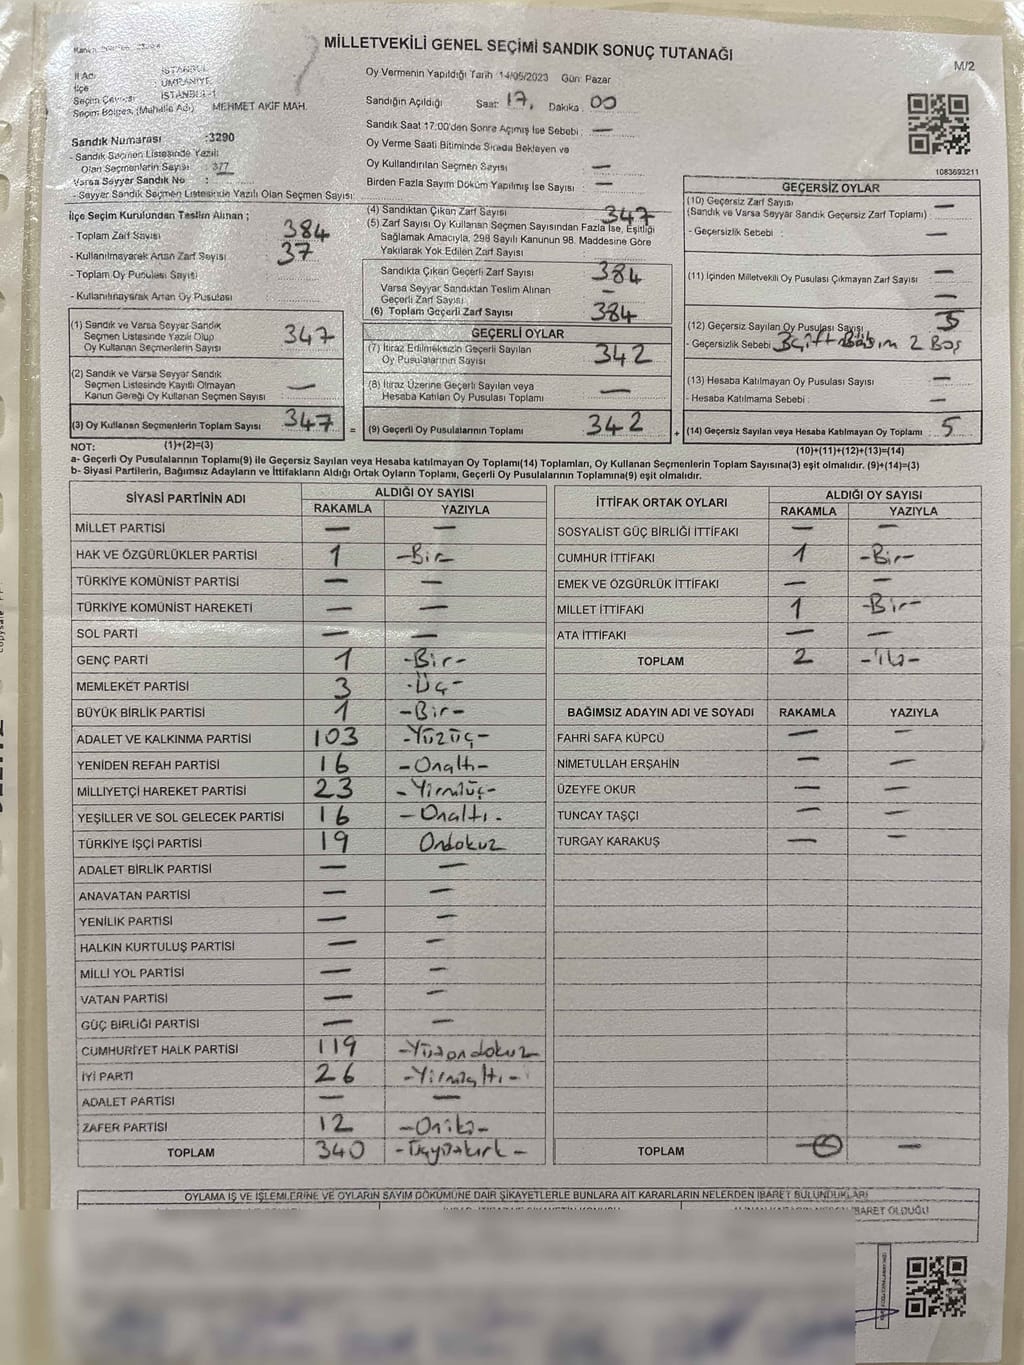 MİLLETVEKİLİ GENEL SEÇİMİ SANDIK SONUÇ TUTANAĞI
M/2
İl Adı İSTANBUL
İlçe ÜMRANİYE
Seçim Çevresi İSTANBUL-1
Seçim Bölgesi, (Mahalle Adı) MEHMET AKİF MAH.
Sandık Numarası :3290
- Sandık Seçmen Listesinde Yazılı
Olan Seçmenlerin Sayısı : 377
Varsa Seyyar Sandık No :
- Seyyar Sandık Seçmen Listesinde Yazılı Olan Seçmen Sayısı:
Oy Vermenin Yapıldığı Tarih 14/05/2023 Gün: Pazar
Sandığın Açıldığı Saat: 17, Dakika: 00
Sandık Saat 17:00'den Sonra Açılmış İse Sebebi : —
Oy Verme Saati Bitiminde Sırada Bekleyen ve
Oy Kullandırılan Seçmen Sayısı —
Birden Fazla Sayım Döküm Yapılmış İse Sayısı : —
1083693211
İlçe Seçim Kurulundan Teslim Alınan ;
- Toplam Zarf Sayısı 384
- Kullanılmayarak Artan Zarf Sayısı : 37
- Toplam Oy Pusulası Sayısı
- Kullanılmayarak Artan Oy Pusulası
(1) Sandık ve Varsa Seyyar Sandık
Seçmen Listesinde Yazılı Olup
Oy Kullanan Seçmenlerin Sayısı 347
(2) Sandık ve Varsa Seyyar Sandık
Seçmen Listesinde Kayıtlı Olmayan
Kanun Gereği Oy Kullanan Seçmen Sayısı —
(3) Oy Kullanan Seçmenlerin Toplam Sayısı 347 =
(1)+(2)=(3)
(4) Sandıktan Çıkan Zarf Sayısı 347
(5) Zarf Sayısı Oy Kullanan Seçmen Sayısından Fazla İse, Eşitliği
Sağlamak Amacıyla, 298 Sayılı Kanunun 98. Maddesine Göre
Yakılarak Yok Edilen Zarf Sayısı
Sandıkta Çıkan Geçerli Zarf Sayısı 384
Varsa Seyyar Sandıktan Teslim Alınan
Geçerli Zarf Sayısı —
(6) Toplam Geçerli Zarf Sayısı 384
GEÇERLİ OYLAR
(7) İtiraz Edilmeksizin Geçerli Sayılan
Oy Pusulalarının Sayısı 342
(8) İtiraz Üzerine Geçerli Sayılan veya
Hesaba Katılan Oy Pusulası Toplamı —
(9) Geçerli Oy Pusulalarının Toplamı 342 +
GEÇERSİZ OYLAR
(10) Geçersiz Zarf Sayısı
(Sandık ve Varsa Seyyar Sandık Geçersiz Zarf Toplamı) —
- Geçersizlik Sebebi : —
(11) İçinden Milletvekili Oy Pusulası Çıkmayan Zarf Sayısı —
—
(12) Geçersiz Sayılan Oy Pusulası Sayısı 5
- Geçersizlik Sebebi 3 Çift Basım 2 Boş
(13) Hesaba Katılmayan Oy Pusulası Sayısı —
- Hesaba Katılmama Sebebi : —
(14) Geçersiz Sayılan veya Hesaba Katılmayan Oy Toplamı 5
(10)+(11)+(12)+(13)=(14)
NOT:
a- Geçerli Oy Pusulalarının Toplamı(9) ile Geçersiz Sayılan veya Hesaba katılmayan Oy Toplamı(14) Toplamları, Oy Kullanan Seçmenlerin Toplam Sayısına(3) eşit olmalıdır. (9)+(14)=(3)
b- Siyasi Partilerin, Bağımsız Adayların ve İttifakların Aldığı Ortak Oyların Toplamı, Geçerli Oy Pusulalarının Toplamına(9) eşit olmalıdır.
SİYASİ PARTİNİN ADI ALDIĞI OY SAYISI
RAKAMLA YAZIYLA
MİLLET PARTİSİ — —
HAK VE ÖZGÜRLÜKLER PARTİSİ 1 -Bir-
TÜRKİYE KOMÜNİST PARTİSİ — —
TÜRKİYE KOMÜNİST HAREKETİ — —
SOL PARTİ — —
GENÇ PARTİ 1 -Bir-
MEMLEKET PARTİSİ 3 -Üç-
BÜYÜK BİRLİK PARTİSİ 1 -Bir-
ADALET VE KALKINMA PARTİSİ 103 -Yüzüç-
YENİDEN REFAH PARTİSİ 16 -Onaltı-
MİLLİYETÇİ HAREKET PARTİSİ 23 -Yirmiüç-
YEŞİLLER VE SOL GELECEK PARTİSİ 16 -Onaltı-
TÜRKİYE İŞÇİ PARTİSİ 19 Ondokuz
ADALET BİRLİK PARTİSİ — —
ANAVATAN PARTİSİ — —
YENİLİK PARTİSİ — —
HALKIN KURTULUŞ PARTİSİ — —
MİLLİ YOL PARTİSİ — —
VATAN PARTİSİ — —
GÜÇ BİRLİĞİ PARTİSİ — —
CUMHURİYET HALK PARTİSİ 119 -Yüzondokuz
İYİ PARTİ 26 -Yirmialtı-
ADALET PARTİSİ — —
ZAFER PARTİSİ 12 -Oniki-
TOPLAM 340 -Üçyüzkırk-
İTTİFAK ORTAK OYLARI ALDIĞI OY SAYISI
RAKAMLA YAZIYLA
SOSYALİST GÜÇ BİRLİĞİ İTTİFAKI — —
CUMHUR İTTİFAKI 1 -Bir-
EMEK VE ÖZGÜRLÜK İTTİFAKI — —
MİLLET İTTİFAKI 1 -Bir-
ATA İTTİFAKI — —
TOPLAM 2 -iki-
BAĞIMSIZ ADAYIN ADI VE SOYADI RAKAMLA YAZIYLA
FAHRİ SAFA KÜPCÜ — —
NİMETULLAH ERŞAHİN — —
ÜZEYFE OKUR — —
TUNCAY TAŞÇI — —
TURGAY KARAKUŞ —  —
TOPLAM 0 —
OYLAMA İŞ VE İŞLEMLERİNE VE OYLARIN SAYIM DÖKÜMÜNE DAİR ŞİKAYETLERLE BUNLARA AİT KARARLARIN NELERDEN İBARET BULUNDUKLARI
İBARET OLDUĞU